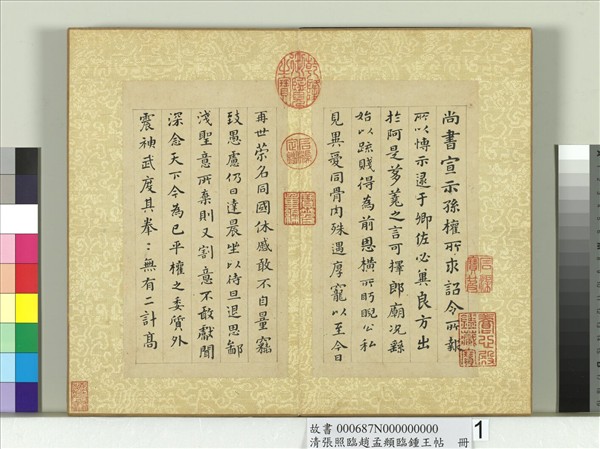 尚書宣示孫權所求詔令所報
所以博示逮于卿佐必冀良方出
於阿是芻蕘之言可擇郎廟況繇
始以疏賤得為前恩橫所盱睨公私
見異愛同骨肉殊遇厚寵以至今日
再世榮名同國休慼敢不自量竊
致愚慮仍日達晨坐以待旦退思鄙
淺聖意所棄則又割意不敢獻聞
深念天下今為已平權之委質外
震神武度其拳：無有二計高
石渠寶笈
養心殿鑑藏寶
故書 000687N000000000
清張照臨趙孟頫臨鍾王帖 冊
1